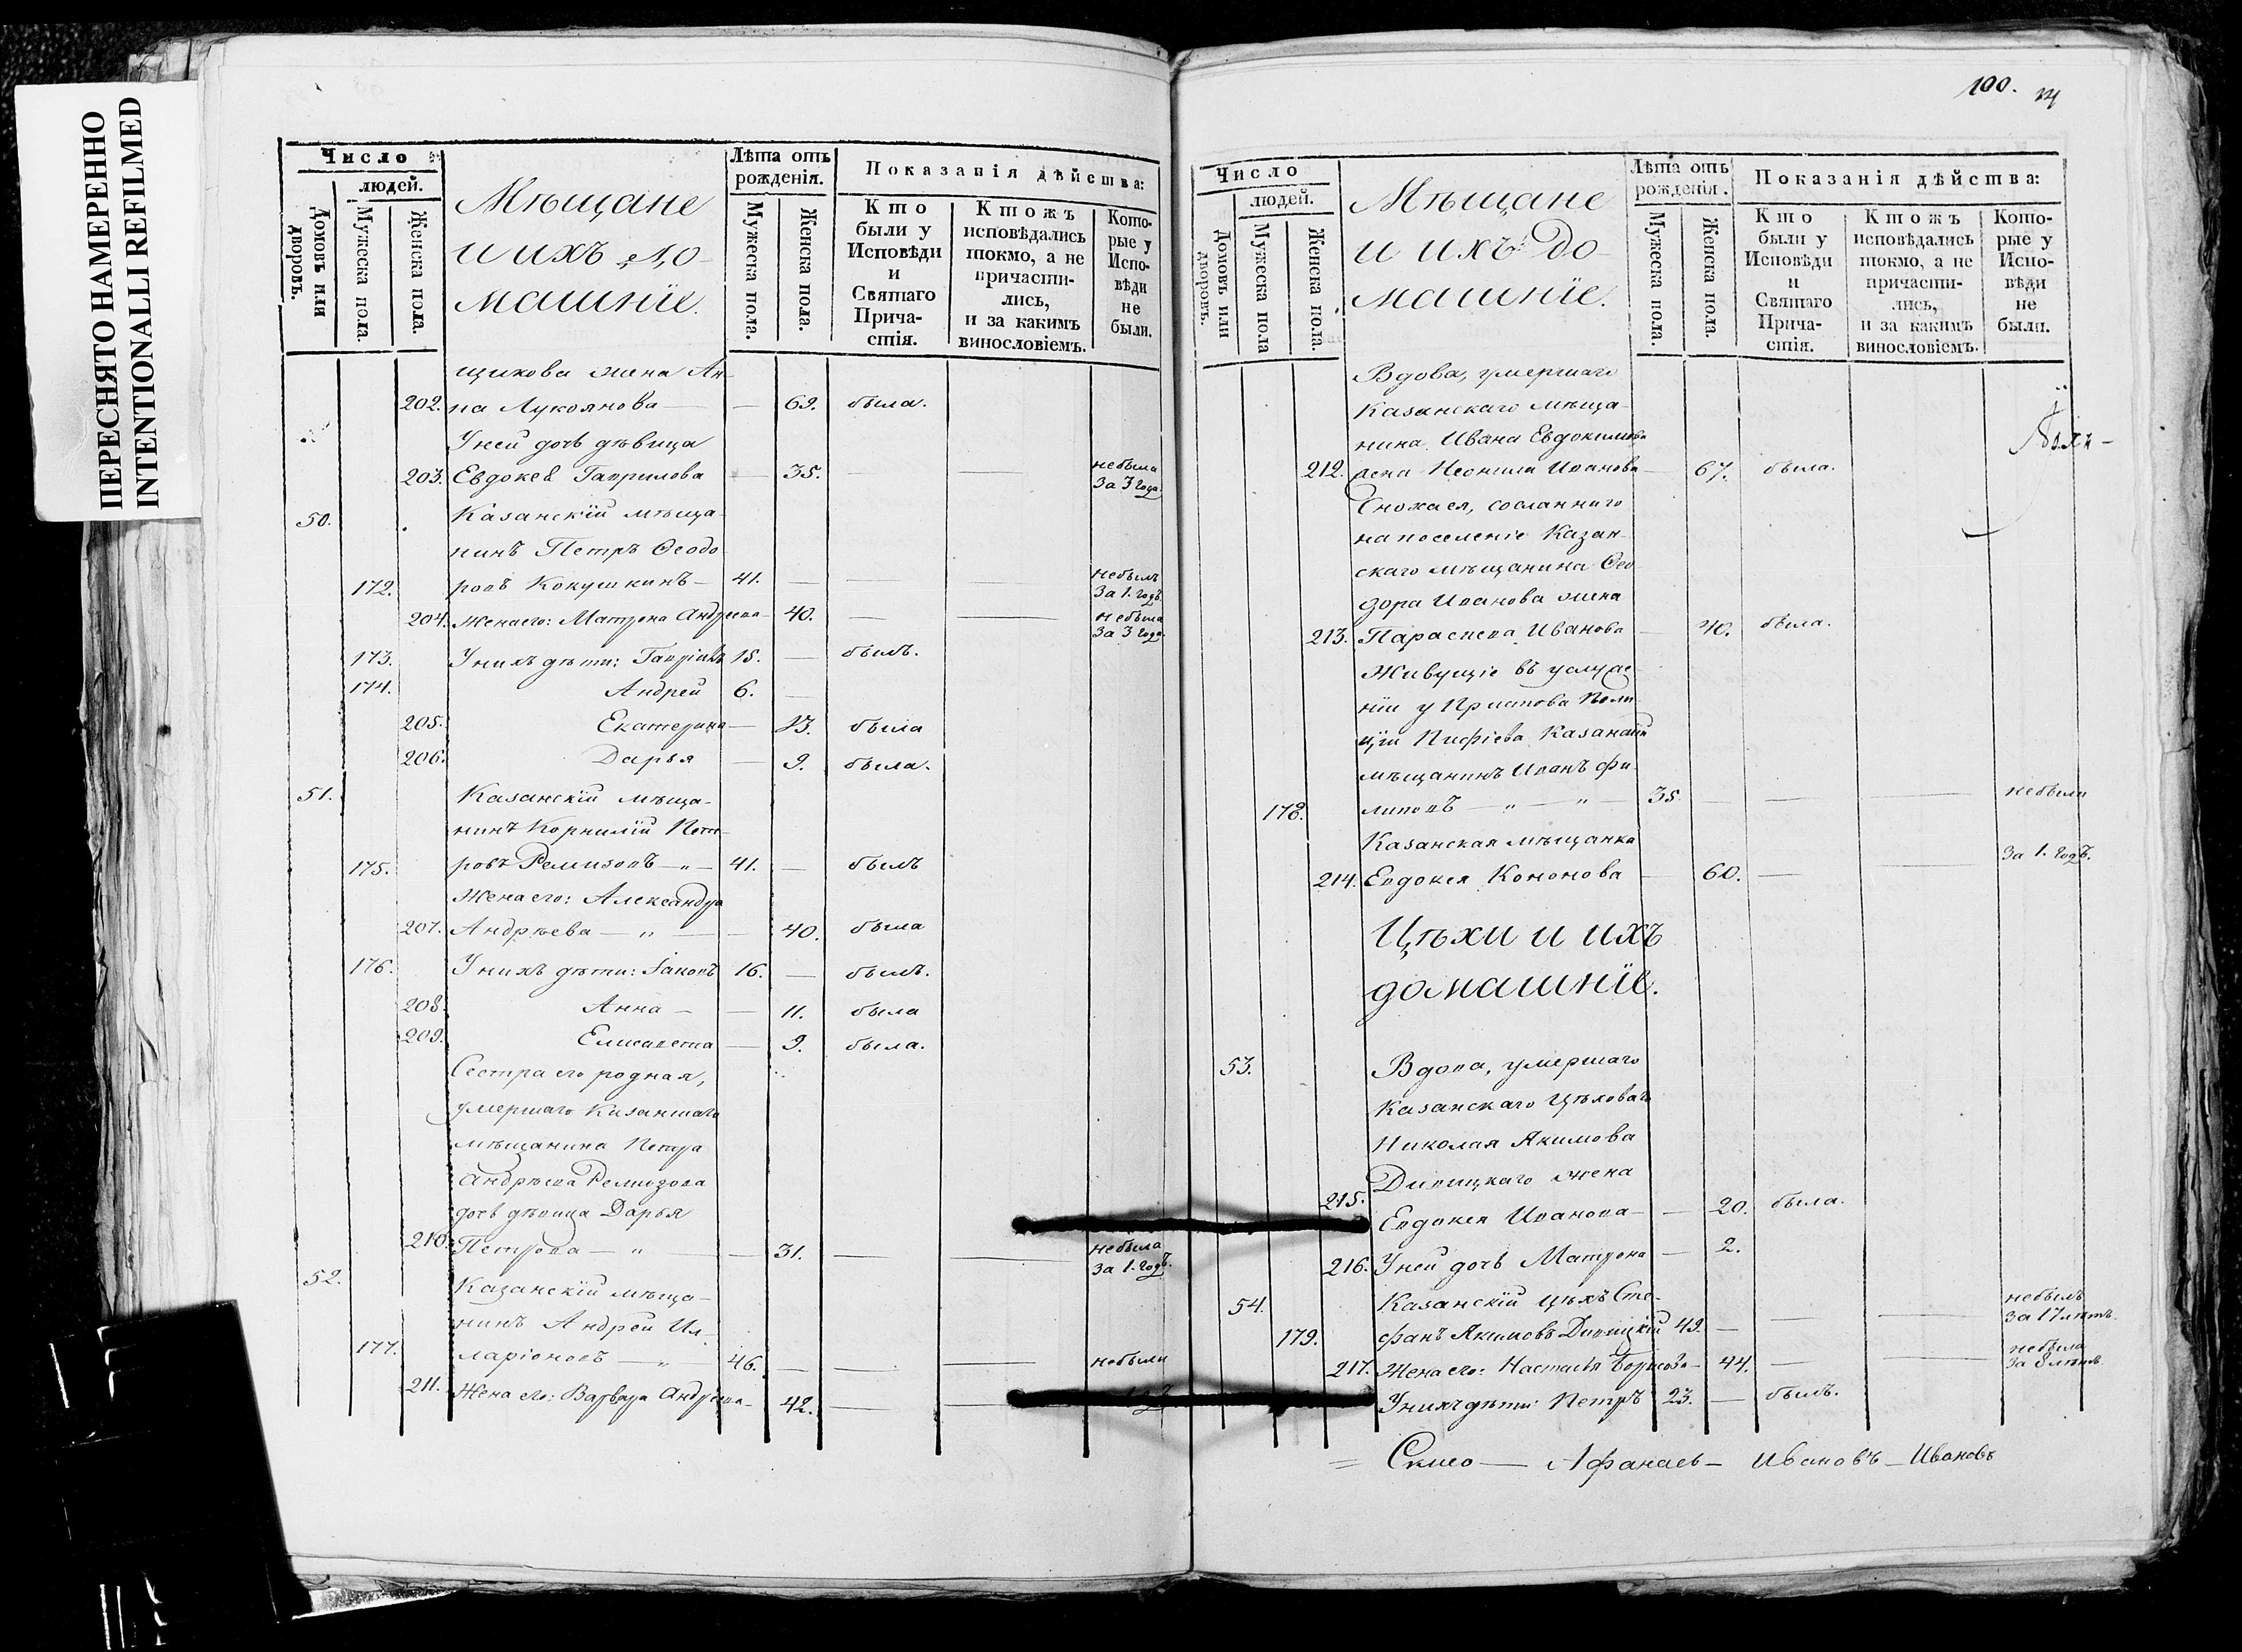 ПЕРЕСНЯТО НАМЕРЕННО
INTENTIONALLI REFILMED
Число
людей.
Домовъ или дворовъ.
Мужеска пола.
Женска пола.
Мѣщане
и ихъ до-
машніе.
Лѣта отъ
рожденія.
Мужеска пола.
Женска пола.
Показанія дѣйства:
Кто
были у
Исповѣди
и
Святаго
Прича-
стія.
Ктожъ
исповѣдались
токмо, а не
причасти-
лись,
и за какимъ
винословіемъ.
Кото-
рые у
Испо-
вѣди
не
были.
щикова жена Ан-
202. на Лукоянова — — 69. была.
У ней дочь дѣвица
203. Евдокея Гаврилова — 35. — — небыла за 3 года
50. Казанскій мѣща-
нинъ Петръ Ѳеодо-
172. ровъ Кокушкинъ — 41. — — небылъ за 1. годъ.
204. Жена его: Матрона Андреева — 40. — — небыла за 3 года.
173. У нихъ дѣти: Гавріилъ 15. — былъ.
174. Андрей 6. —
205. Екатерина — 13. была
206. Дарья — 9. была.
51. Казанскій мѣща-
нинъ Корнилій Пет-
175. ровъ Ремизовъ — „ — 41. — былъ
Жена его: Александра
207. Андрѣева — „ — — 40. была
176. У нихъ дѣти: Іаковъ 16. — былъ.
208. Анна — — 11. была
209. Елисавета — 9. была.
Сестра его родная,
умершаго Казанскаго
мѣщанина Петра
Андрѣева Ремизова
дочь дѣвица Дарья
210. Петрова — „ — — 31. — — небыла за 1. годъ.
52. Казанскій мѣща-
нинъ Андрей Ил-
177. ларіоновъ — „ — 46. — — — небыли
211. Жена его: Варвара Андрѣева — 42. — —
100.
Число
людей.
Домовъ или дворовъ.
Мужеска пола
Женска пола.
Мѣщане
и ихъ до-
машніе.
Лѣта отъ
рожденія.
Мужеска пола.
Женска пола.
Показанія дѣйства:
Кто
были у
Исповѣди
и
Святаго
Прича-
стія.
Ктожъ
исповѣдались
токмо, а не
причасти-
лись,
и за какимъ
винословіемъ.
Кото-
рые у
Испо-
вѣди
не
были.
Вдова, умершаго
Казанскаго мѣща-
нина Ивана Евдокимова
212. жена Неонила Иванова — 67. была.
Сноха ея, сосланнаго
на поселеніе Казан-
скаго мѣщанина Ѳео-
дора Иванова жена
213. Параскева Иванова — 40. была.
Живущіе въ услуже-
ніи у Пристова Поли-
ціи Казанскій
мѣщанинъ Иванъ Фи-
178. липовъ — „ — „ — 35. — — — небыли
Казанская мѣщанка
214. Евдокея Кононова — 60. — — за 1. годъ.
Цѣхи и ихъ
домашніе.
53. Вдова, умершаго
Казанскаго Цѣховаго
Николая Якимова
Дивицкаго жена
215. Евдокея Иванова — — 20. была.
216. У ней дочь Матрона — 2.
54. Казанскій цѣхъ Сте-
179. фанъ Якимовъ Дивицкій 49. — — — небылъ за 17 лѣтъ.
217. Жена его: Настасья Борисова — 44. — — небыла за 8 лѣтъ
У нихъ дѣти: Петръ 23. — былъ.
Афанасъ — Ивановъ — Ивановъ